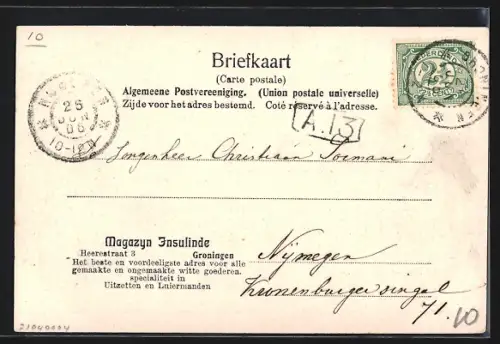 10
Briefkaart
(Carte postale)
Algemeene Postvereeniging. (Union postale universelle)
Zijde voor het adres bestemd. Côté réservé à l'adresse.
A.13
25
JUN
06
10-12
2½
Jongenheer Christiaan
Magazyn Insulinde
Heerestraat 3 Groningen
Het beste en voordeeligste adres voor alle
gemaakte en ongemaakte witte goederen.
specialiteit in
Uitzetten en Luiermanden
Nijmegen
Kronenburger singel
71.
10